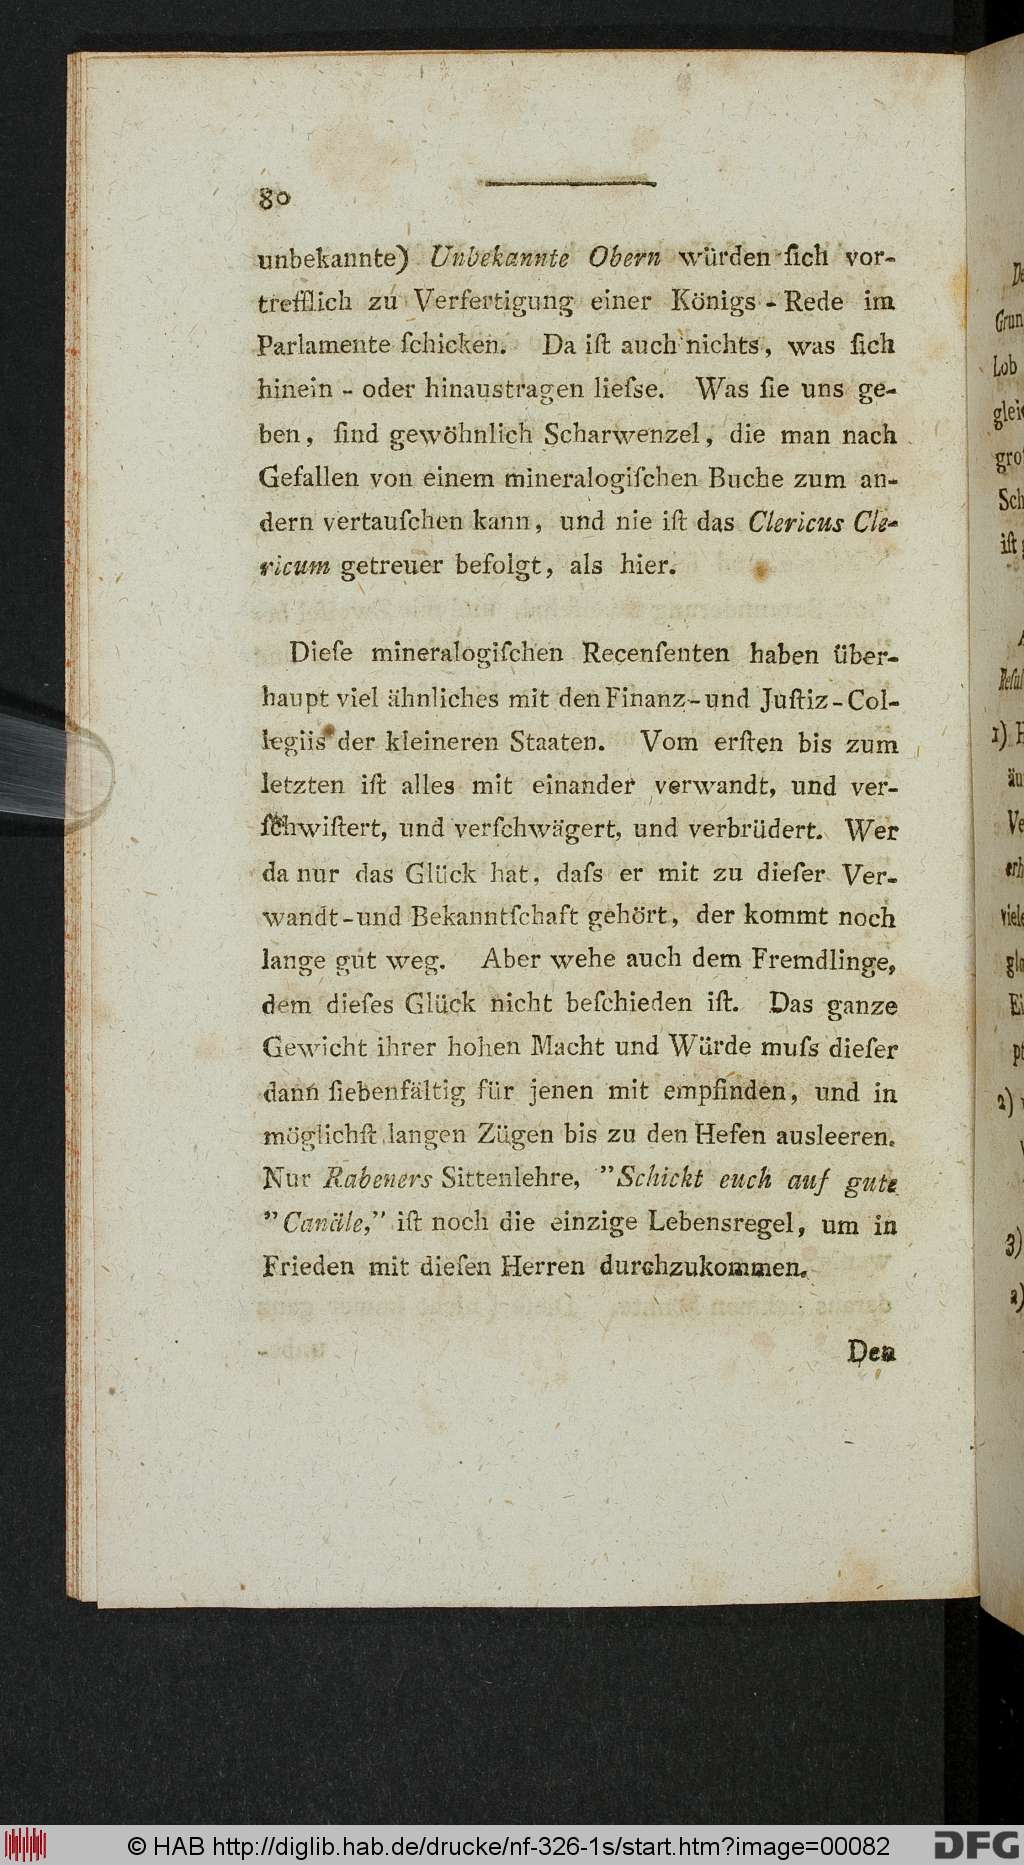 80
unbekannte) Unbekannte Obern würden ſich vor-
trefflich zu Verfertigung einer Königs - Rede im
Parlamente ſchicken. Da iſt auch nichts, was ſich
hinein - oder hinaustragen lieſse. Was ſie uns ge-
ben, ſind gewöhnlich Scharwenzel, die man nach
Gefallen von einem mineralogiſchen Buche zum an-
dern vertauſchen kann, und nie iſt das Clericus Cle-
ricum getreuer befolgt, als hier.
Dieſe mineralogiſchen Recenſenten haben über-
haupt viel ähnliches mit den Finanz- und Juſtiz - Col-
legiis der kleineren Staaten. Vom erſten bis zum
letzten iſt alles mit einander verwandt, und ver-
ſchwiſtert, und verſchwägert, und verbrüdert. Wer
da nur das Glück hat, daſs er mit zu dieſer Ver-
wandt - und Bekanntſchaft gehört, der kommt noch
lange gut weg. Aber wehe auch dem Fremdlinge,
dem dieſes Glück nicht beſchieden iſt. Das ganze
Gewicht ihrer hohen Macht und Würde muſs dieſer
dann ſiebenfältig für jenen mit empfinden, und in
möglichſt langen Zügen bis zu den Hefen ausleeren.
Nur Rabeners Sittenlehre, ”Schickt euch auf gute
”Canäle,” iſt noch die einzige Lebensregel, um in
Frieden mit dieſen Herren durchzukommen.
Den
Grun
Lob
Sch
iſt
1)
Ve
2)
3)
© HAB http://diglib.hab.de/drucke/nf-326-1s/start.htm?image=00082
DFG